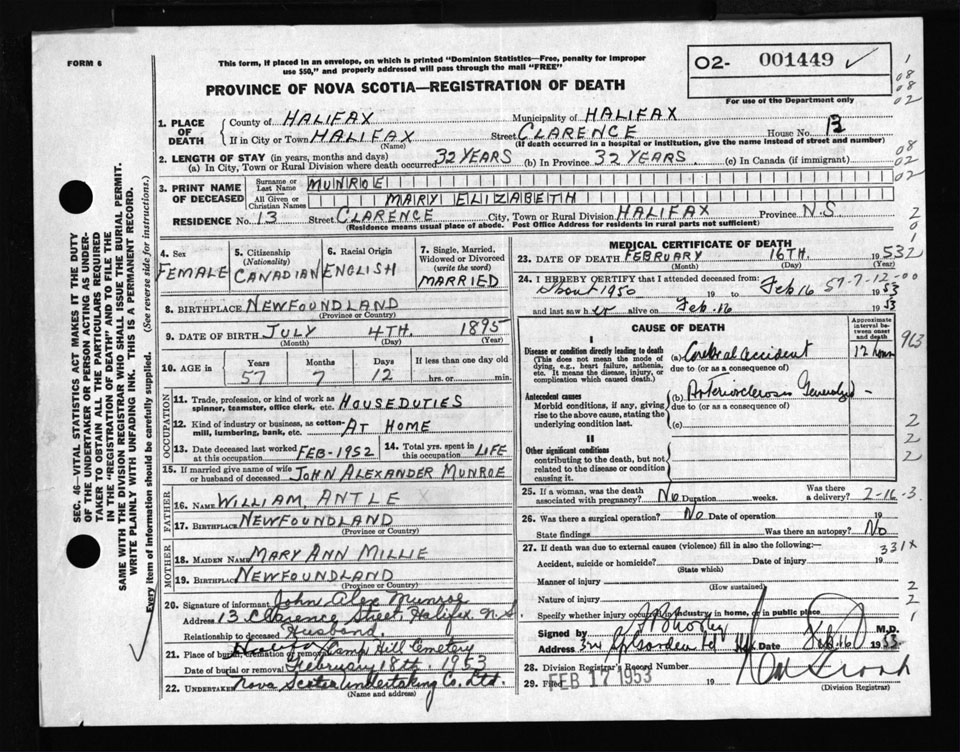 FORM 6
This form, if placed in an envelope, on which is printed "Dominion Statistics—Free, penalty for improper
use $50," and properly addressed will pass through the mail "FREE"
PROVINCE OF NOVA SCOTIA—REGISTRATION OF DEATH
O2- 001449 ✓
For use of the Department only
1. PLACE OF DEATH
County of HALIFAX Municipality of HALIFAX
If in City or Town HALIFAX (Name) Street CLARENCE House No. 13
(If death occurred in a hospital or institution, give the name instead of street and number)
2. LENGTH OF STAY (in years, months and days)
(a) In City, Town or Rural Division where death occurred 32 YEARS (b) In Province 32 YEARS. (c) In Canada (if immigrant)
3. PRINT NAME OF DECEASED
Surname or Last Name MUNROE
All Given or Christian Names MARY ELIZABETH
RESIDENCE No. 13 Street CLARENCE City, Town or Rural Division HALIFAX Province N.S.
(Residence means usual place of abode. Post Office Address for residents in rural parts not sufficient)
4. Sex
FEMALE
5. Citizenship (Nationality)
CANADIAN
6. Racial Origin
ENGLISH
7. Single, Married, Widowed or Divorced (write the word)
MARRIED
8. BIRTHPLACE NEWFOUNDLAND
(Province or Country)
9. DATE OF BIRTH JULY 4TH. 1895
(Month) (Day) (Year)
10. AGE in Years Months Days If less than one day old
57 7 12 hrs. or min.
OCCUPATION
11. Trade, profession, or kind of work as spinner, teamster, office clerk, etc. HOUSEDUTIES
12. Kind of industry or business, as cotton-mill, lumbering, bank, etc. AT HOME
13. Date deceased last worked at this occupation FEB-1952
14. Total yrs. spent in this occupation LIFE
15. If married give name of wife or husband of deceased JOHN ALEXANDER MUNROE
FATHER
16. NAME WILLIAM, ANTLE
17. BIRTHPLACE NEWFOUNDLAND
(Province or Country)
MOTHER
18. MAIDEN NAME MARY ANN MILLIE
19. BIRTHPLACE NEWFOUNDLAND
(Province or Country)
20. Signature of informant John Alex Munroe
Address 13 Clarence Street, Halifax, N.S.
Relationship to deceased Husband.
21. Place of burial, cremation or removal Halifax Camp Hill Cemetery
Date of burial or removal February 18th. 1953
22. UNDERTAKER Nova Scotia Undertaking Co. Ltd.
(Name and address)
MEDICAL CERTIFICATE OF DEATH
23. DATE OF DEATH FEBRUARY 16TH. 1953
(Month) (Day) (Year)
24. I HEREBY CERTIFY that I attended deceased from:
About 1950 19 to Feb 16 1953
and last saw her alive on Feb. 16 1953
57-7-12-00
CAUSE OF DEATH
Approximate interval between onset and death
I
Disease or condition directly leading to death
(This does not mean the mode of dying, e.g., heart failure, asthenia, etc. It means the disease, injury, or complication which caused death.)
(a) Cerebral accident 12 hours
due to (or as a consequence of)
Antecedent causes
Morbid conditions, if any, giving rise to the above cause, stating the underlying condition last.
(b) Arteriosclerosis Generalized
due to (or as a consequence of)
(c)
II
Other significant conditions
contributing to the death, but not related to the disease or condition causing it.
25. If a woman, was the death associated with pregnancy? No Duration weeks. Was there a delivery? 2-16-3.
26. Was there a surgical operation? No Date of operation 19
State findings Was there an autopsy? No
27. If death was due to external causes (violence) fill in also the following:—
331X
Accident, suicide or homicide? Date of injury 19
(State which)
Manner of injury
(How sustained)
Nature of injury
Specify whether injury occurred in industry in home, or in public place
Signed by M.D.
Address Date Feb. 16 1953
28. Division Registrar's Record Number
29. Filed FEB 17 1953 19
(Division Registrar)
SEC. 46—VITAL STATISTICS ACT MAKES IT THE DUTY
OF THE UNDERTAKER OR PERSON ACTING AS UNDER-
TAKER TO OBTAIN ALL THE PARTICULARS REQUIRED
IN THE "REGISTRATION OF DEATH" AND TO FILE THE
SAME WITH THE DIVISION REGISTRAR WHO SHALL ISSUE THE BURIAL PERMIT.
WRITE PLAINLY WITH UNFADING INK. THIS IS A PERMANENT RECORD.
Every item of information should be carefully supplied. (See reverse side for instructions.)